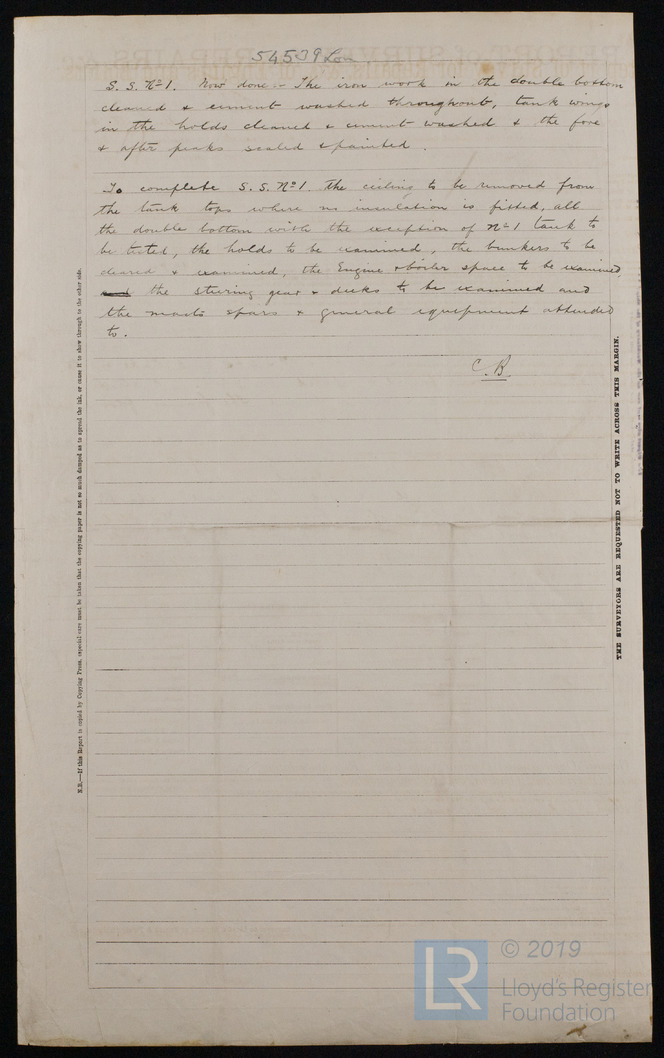 54539 Lon
S. S. No 1. Now done :- The iron work in the double bottom
cleaned & cement washed throughout, tank wings
in the holds cleaned & cement washed & the fore
& after peaks scaled & painted.
To complete S. S. No 1. the ceiling to be removed from
the tank tops where no insulation is fitted, all
the double bottom with the exception of No 1 tank to
be tested, the holds to be examined, the bunkers to be
cleared & examined, the Engine & boiler space to be examined,
the steering gear & decks to be examined and
the masts spars & general equipment attended
to.
C.B.
N.B.—If this Report is copied by Copying Press, especial care must be taken that the copying paper is not so much damped as to spread the ink, or cause it to show through to the other side.
THE SURVEYORS ARE REQUESTED NOT TO WRITE ACROSS THIS MARGIN.
LR
© 2019
Lloyd's Register
Foundation